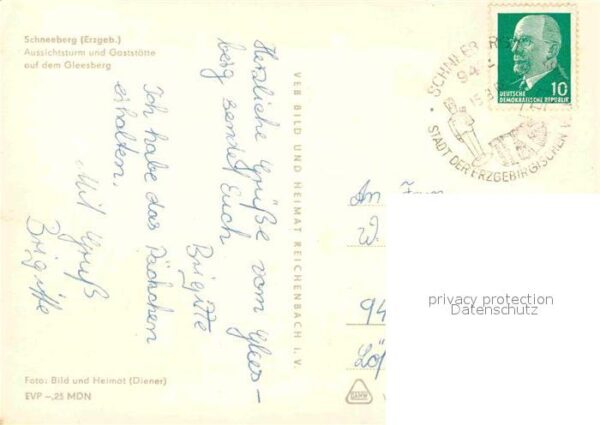 Schneeberg (Erzgeb.)
Aussichtsturm und Gaststätte
auf dem Gleesberg
Herzliche Grüße vom Glees-
berg sendet Euch
Brigitte
Ich habe das Päckchen
erhalten.
Mit Gruß
Brigitte
Foto: Bild und Heimat (Diener)
EVP –,25 MDN
VEB BILD UND HEIMAT REICHENBACH i. V.
DEUTSCHE
DEMOKRATISCHE REPUBLIK
10
94
STADT DER ERZGEBIRGISCHEN
An
W.
94
Lö
privacy protection
Datenschutz